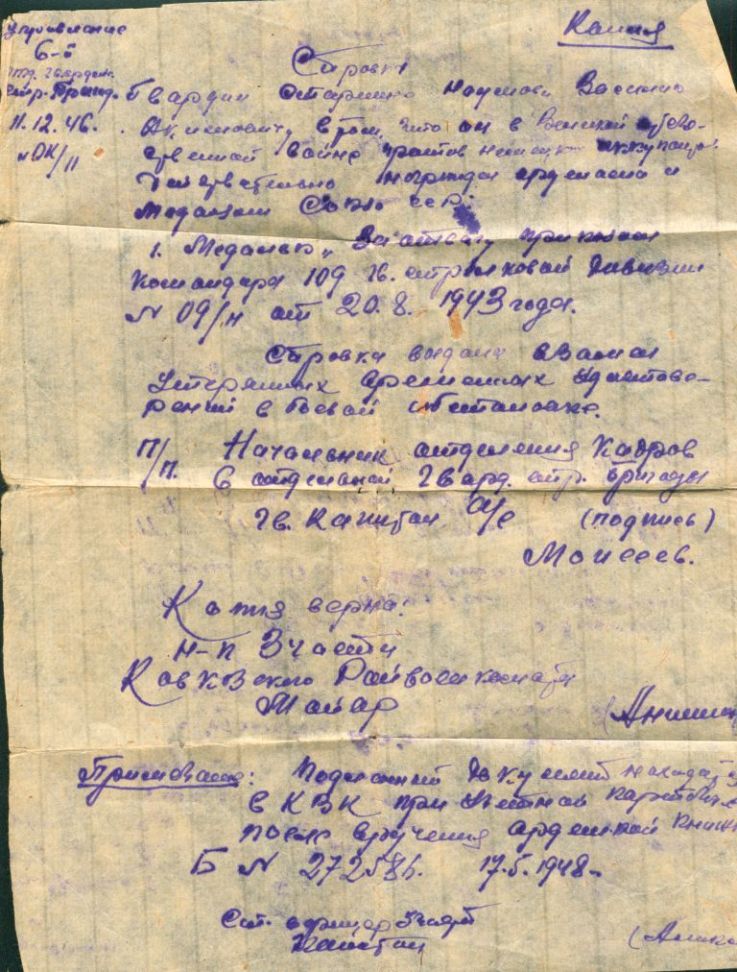 Управление
6-й
отд. Гвардейс.
стр. Бригад.
11.12.46.
№ОК/11
Копия
Справка
Гвардии старшине Наумову Василию
в том, что он в Великой Отече-
ственной войне против немецких оккупан.
Действительно награжден орденами и
Медалями Союза ССР:
1. Медалью „За отвагу" приказом
Командира 109 гв. стрелковой дивизии
№ 09/н от 20.8. 1943 года.
Справка выдана взамен
Утерянных временных удостове-
рений в боевой обстановке.
П/П. Начальник отделения Кадров
6 отдельной Гвард. стр. бригады
Гв. Капитан а/с (подпись)
Моисеев.
Копия верна:
Н-к 3 части
Райвоенкомата
Майор
Примечание: Подлинный Документ находится
в КВК при учетной карточке
после вручения орденской книжки
Б № 17.5.1948.
части
Капитан